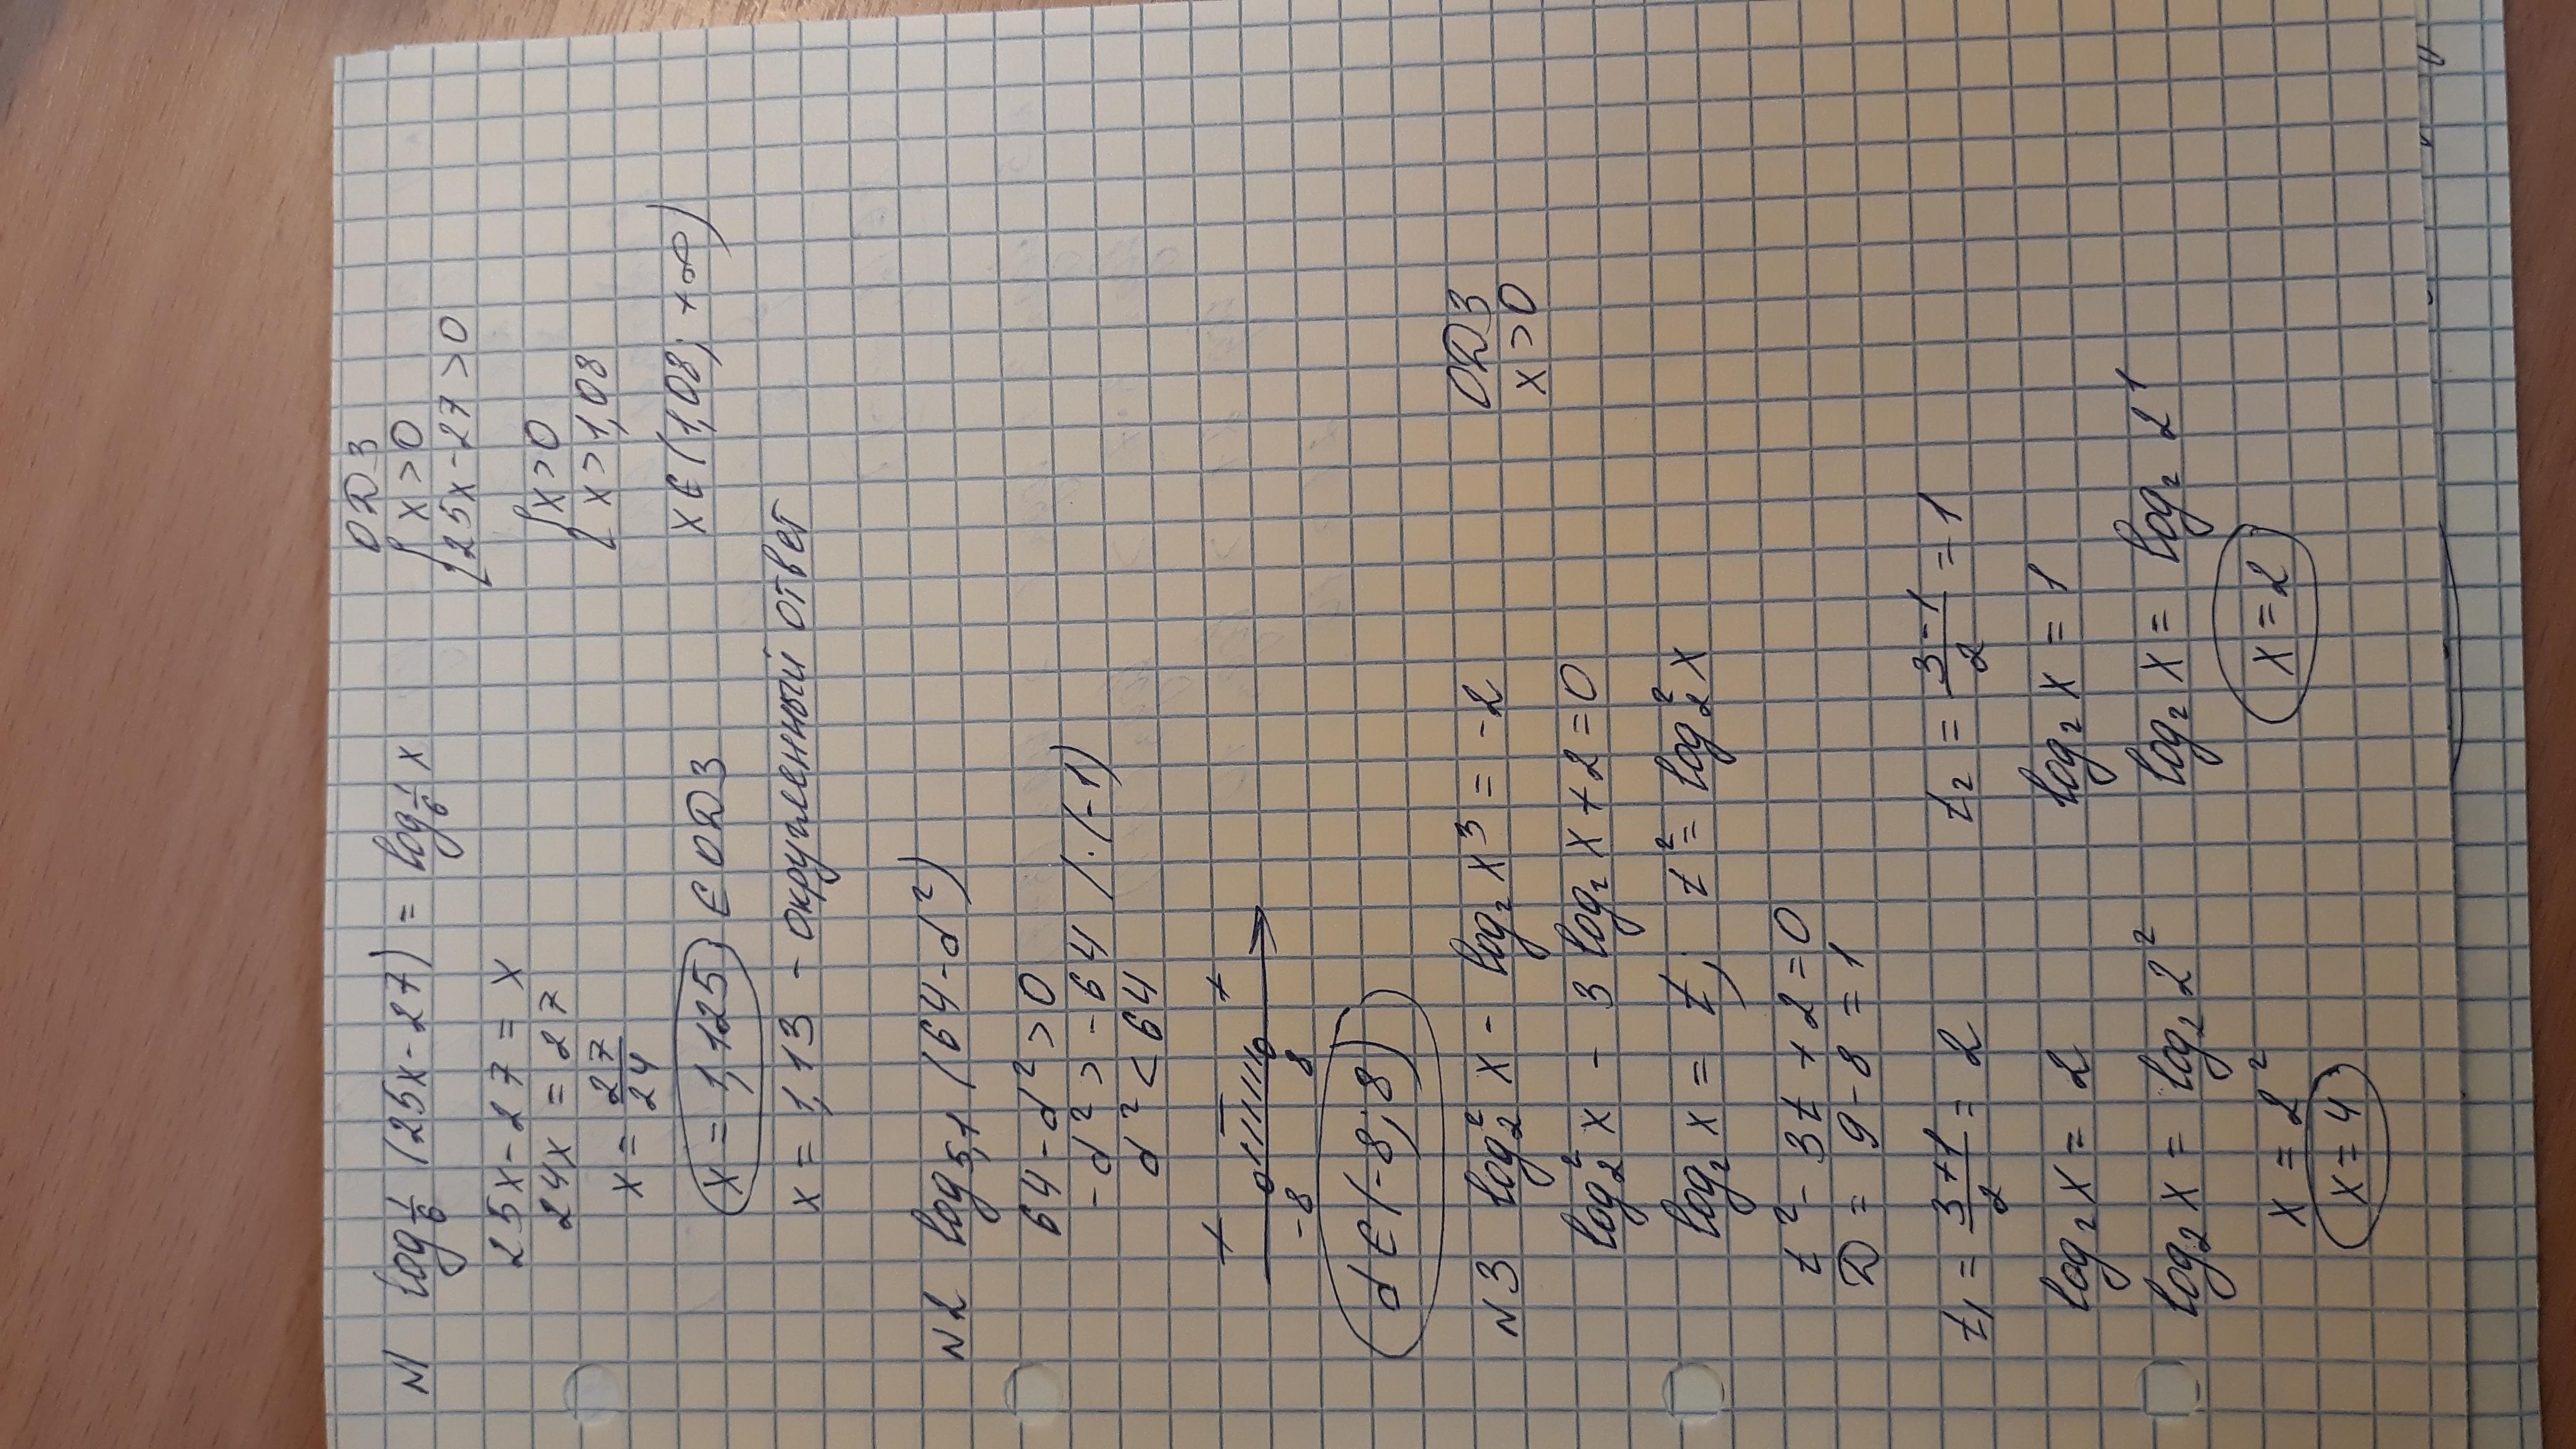 N1 log_{1/6} (25x-27) = log_{1/6} x
ОДЗ
{ x>0
25x-27>0
25x-27=x
24x=27
x=27/24
{ x>0
x>1,08
x=1,125 ∈ ОДЗ
x∈(1,08; +∞)
x=1,13 - округленный ответ
N2 log_{5,1} (64-d²)
64-d²>0
-d²>-64 /·(-1)
d²<64
+ - +
-8 8
d∈(-8; 8)
N3 log₂² x - log₂ x³ = -2
ОДЗ
x>0
log₂² x - 3 log₂ x+2=0
log₂ x = t, t² = log₂² x
t² - 3t + 2=0
D = 9-8 = 1
t₁ = (3+1)/2 = 2 t₂ = (3-1)/2 = 1
log₂ x = 2 log₂ x = 1
log₂ x = log₂ 2² log₂ x = log₂ 2¹
x = 2² x=2
x=4